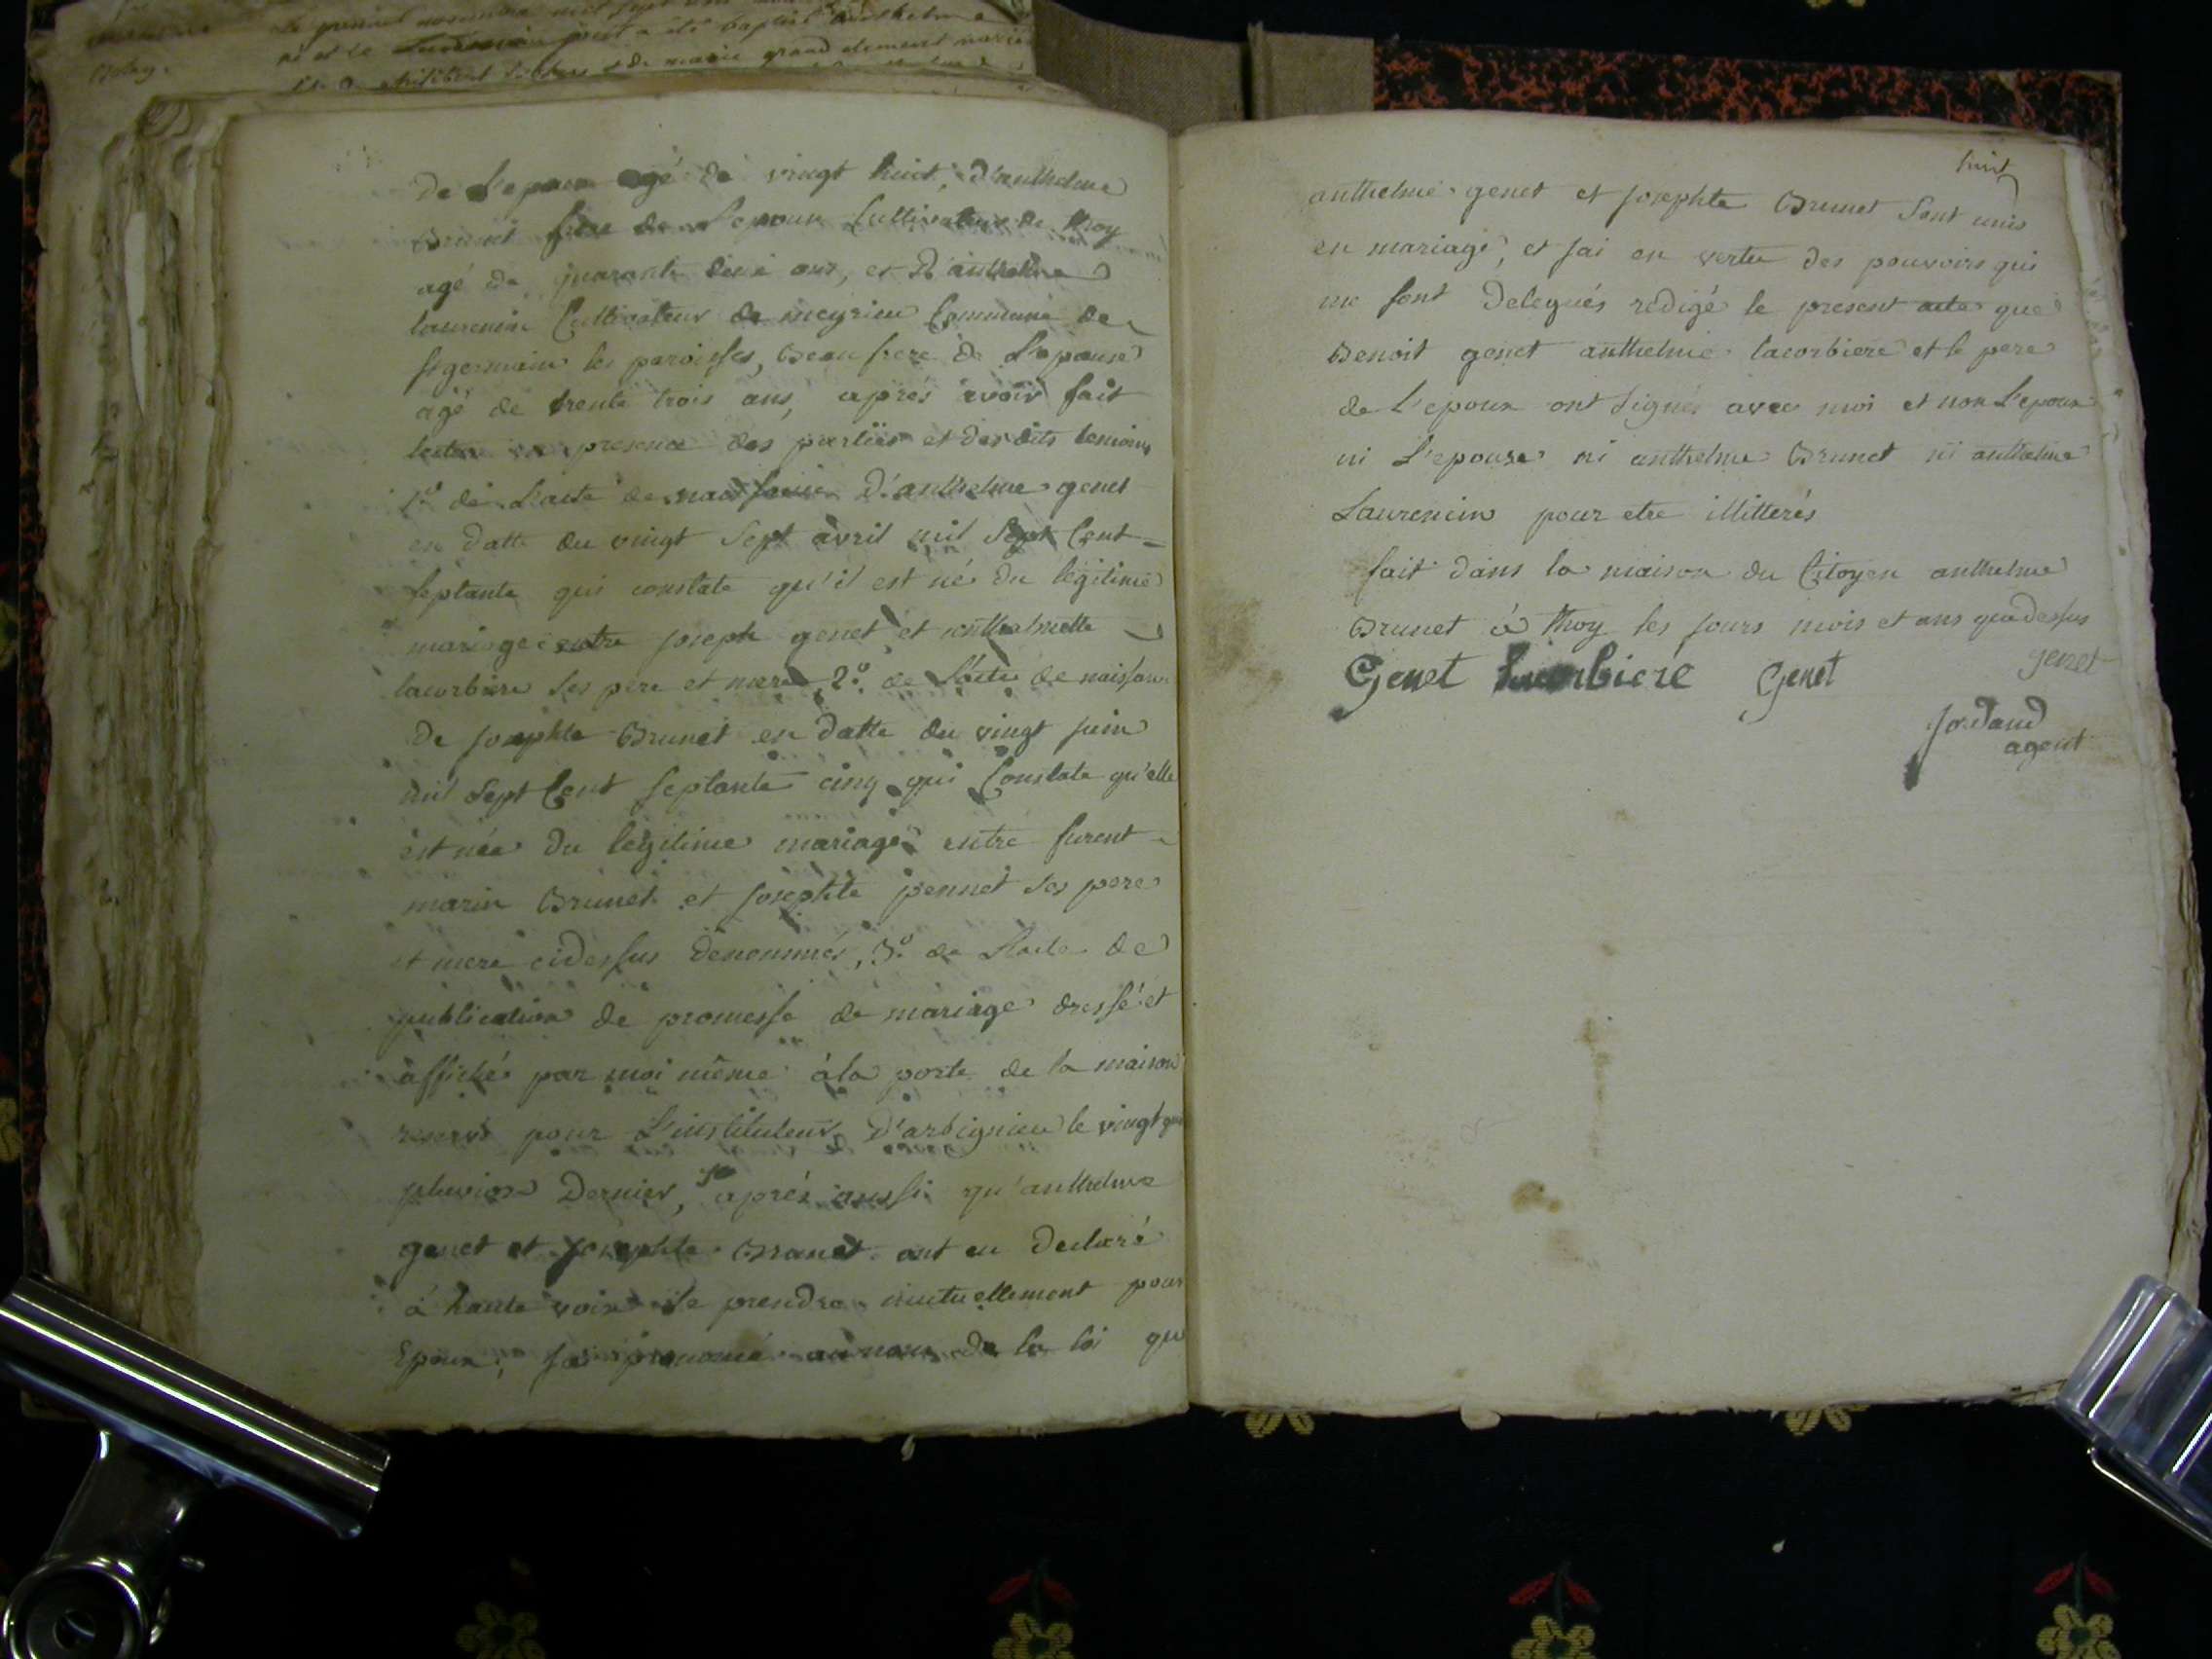 Le premier novembre mil sept cent
né et le Susdit jour a été baptisé anthelme
de marie grand clement mariés
De L'epoux agé de vingt huit, d'anthelme
Brunet frere de L'epouse Cultivateur de thoy
agé de quarante deux ans, et D'anthelme
laurencin Cultivateur de meyrieu Commune de
St germain les paroisses, Beau frere de L'epouse
agé de trente trois ans, aprés avoir fait
lecture en presence des parties et des dits temoins
1º de L'acte de naissance D'anthelme genet
en datte du vingt Sept avril mil Sept Cent
septante qui constate qu'il est né du légitime
mariage entre joseph genet et anthelmette
lacorbiere ses pere et mere 2º. de L'acte de naissance
De josephte Brunet en datte du vingt juin
mil Sept Cent septante cinq qui Constate qu'elle
est née du légitime mariage entre furent
marin Brunet et josephte pennet ses pere
et mere cidessus denommés, 3º de L'acte de
publication de promesse de mariage dressé et
affiché par moi même à la porte de la maison
reservé pour L'instituteur D'arbignieu le vingt
pluviose Dernier, aprés aussi qu'anthelme
genet et josephte Brunet ont eu declaré
à haute voix se prendre mutuellement pour
Epoux, jai prononcé au nom de la loi que
huit
anthelme genet et josephte Brunet Sont unis
en mariage, et jai en vertu des pouvoirs qui
me sont delegués redigé le present acte que
Benoit genet anthelme lacorbiere et le pere
de L'epoux ont signés avec moi et non L'epoux
ni L'epouse ni anthelme Brunet ni anthelme
Laurencin pour etre illitterés
fait dans la maison du Citoyen anthelme
Brunet à thoy les jours mois et ans quedessus
Genet lacorbiere Genet genet
jordand
agent